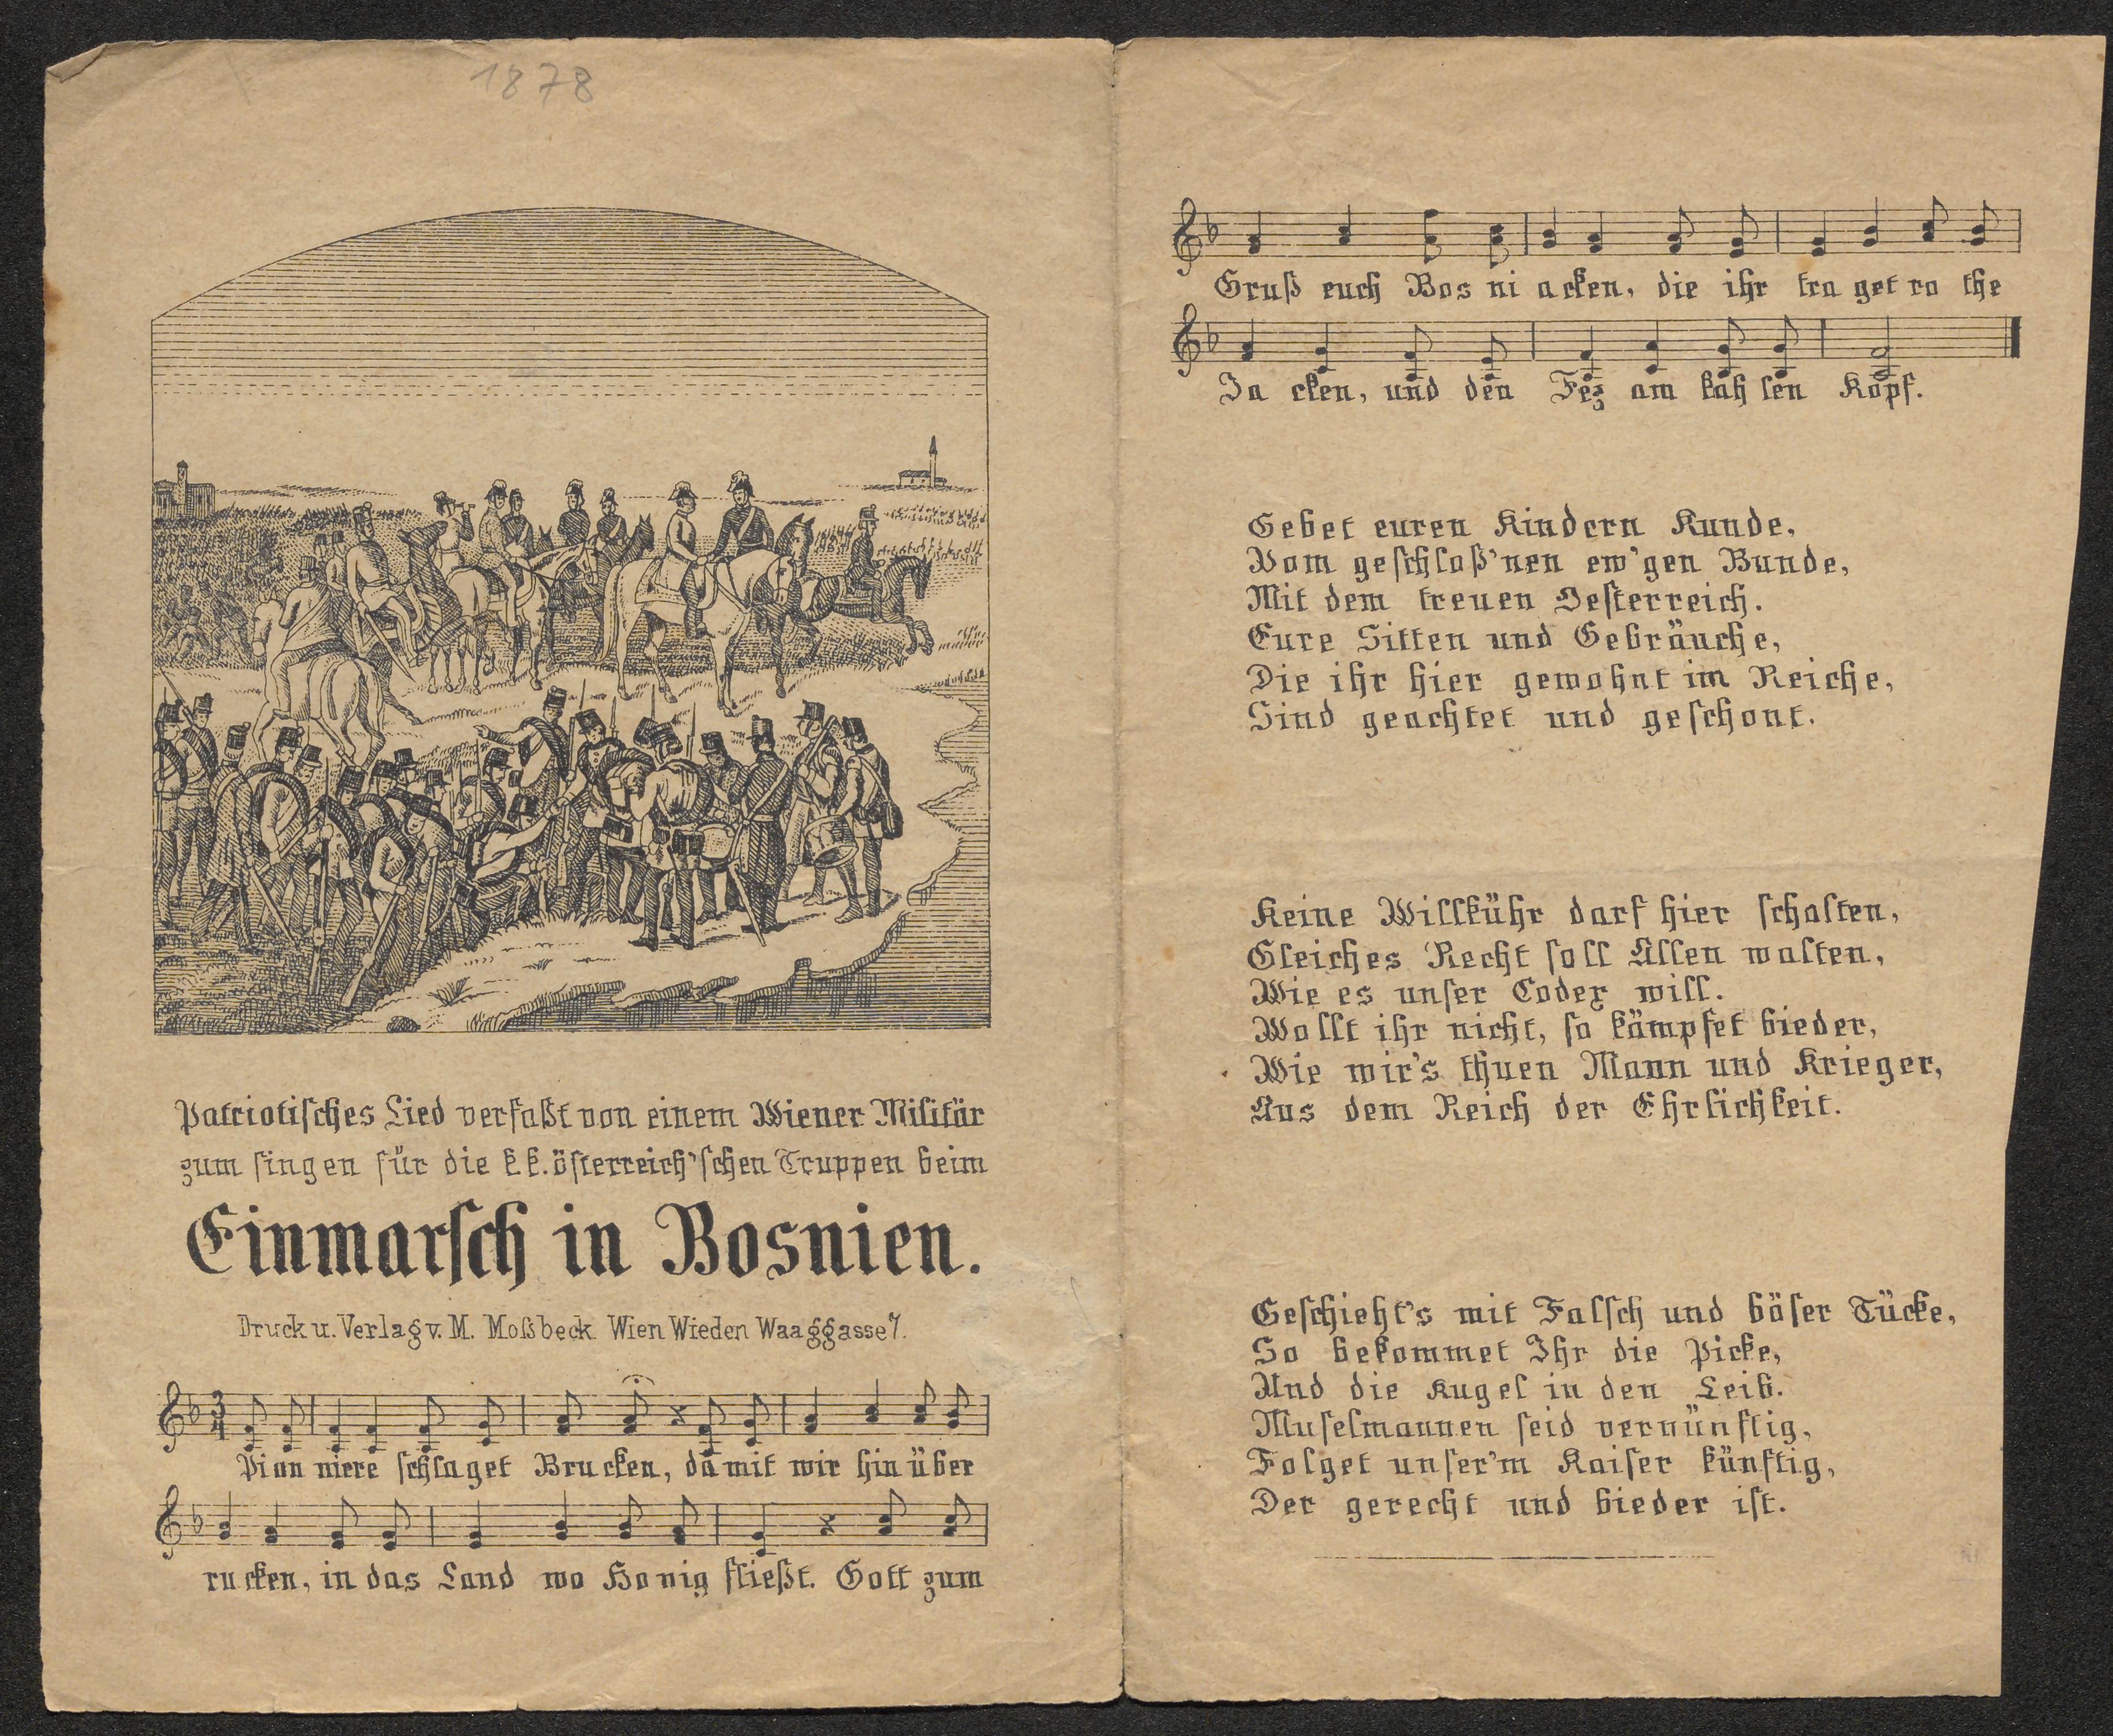 1878
Patriotisches Lied verfaßt von einem Wiener Militär
zum singen für die k.k. österreich'schen Truppen beim
Einmarsch in Bosnien.
Druck u. Verlag v. M. Moßbeck Wien Wieden Waaggasse 7.
Pion niere schlaget Brucken, damit wir hinüber
rucken, in das Land wo Honig fließt. Gott zum
Gruß euch Bos ni acken, die ihr tra get ro the
Ja cken, und den Fez am kah len Kopf.
Gebet euren Kindern Kunde,
Vom geschloß'nen ew'gen Bunde,
Mit dem treuen Oesterreich.
Eure Sitten und Gebräuche,
Die ihr hier gewohnt im Reiche,
Sind geachtet und geschont.
Keine Willkühr darf hier schalten,
Gleiches Recht soll Allen walten,
Wie es unser Codex will.
Wollt ihr nicht, so kämpfet bieder,
Wie wir's thuen Mann und Krieger,
Aus dem Reich der Ehrlichkeit.
Geschieht's mit Falsch und böser Tücke,
So bekommet Ihr die Picke,
Und die Kugel in den Leib.
Muselmannen seid vernünftig,
Folget unser'm Kaiser künftig,
Der gerecht und bieder ist.